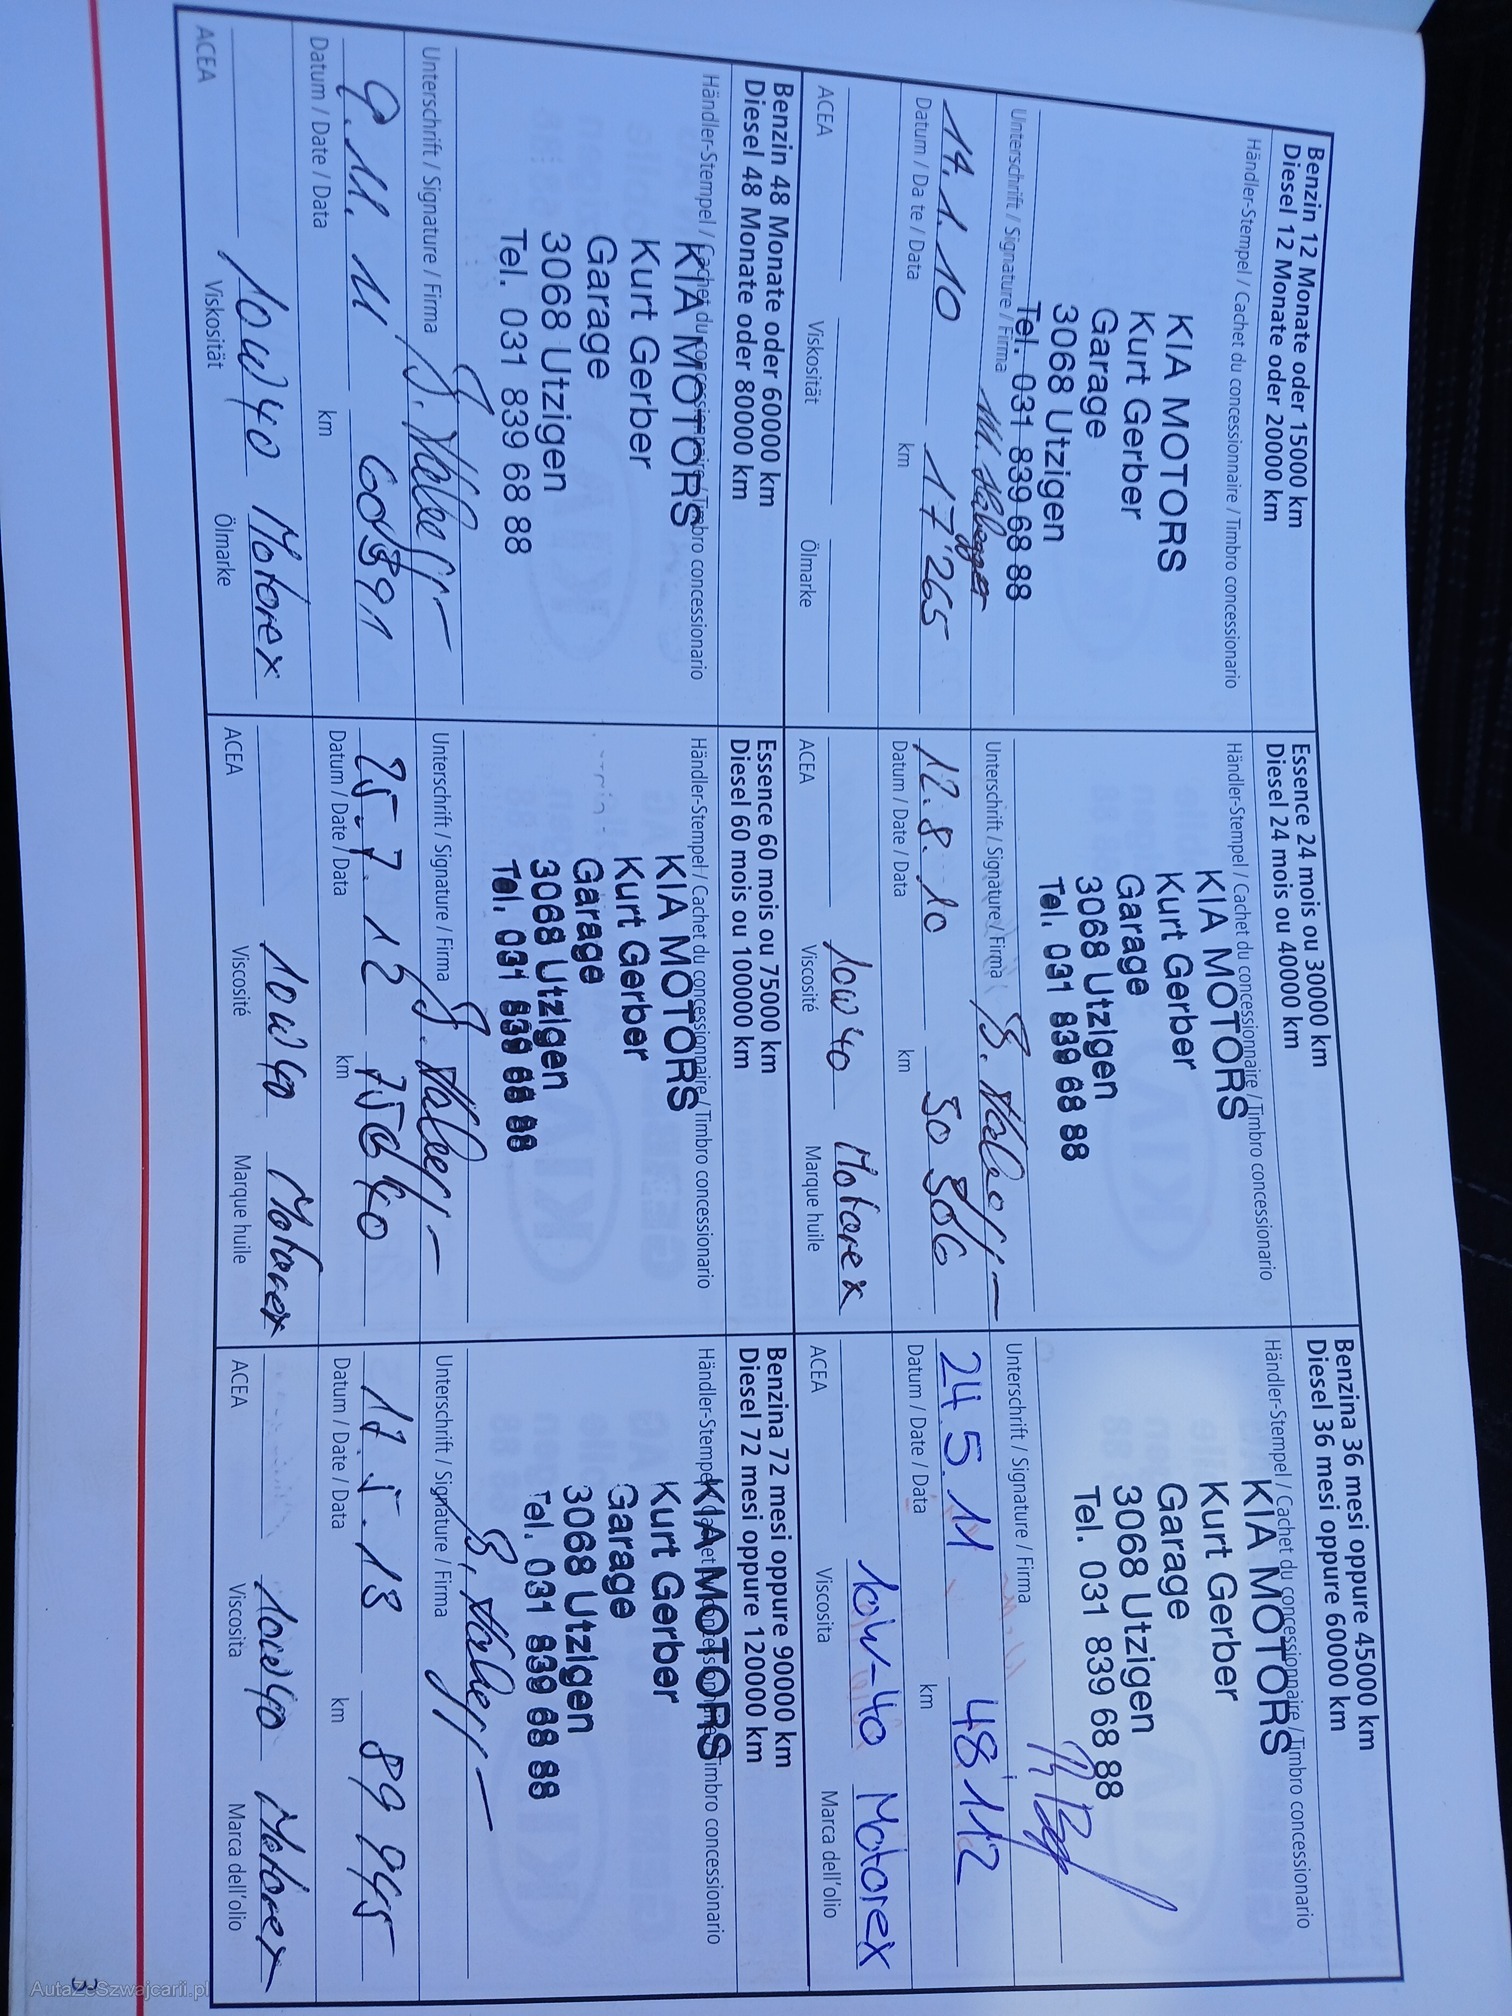 Benzin 12 Monate oder 15000 km
Diesel 12 Monate oder 20000 km
Händler-Stempel / Cachet du concessionnaire / Timbro concessionario
KIA MOTORS
Kurt Gerber
Garage
3068 Utzigen
Tel. 031 839 68 88
Unterschrift / Signature / Firma
14.1.10 17'265
Datum / Da te / Data km
ACEA Viskosität Ölmarke
Essence 24 mois ou 30000 km
Diesel 24 mois ou 40000 km
Händler-Stempel / Cachet du concessionnaire / Timbro concessionario
KIA MOTORS
Kurt Gerber
Garage
3068 Utzigen
Tel. 031 839 68 88
Unterschrift / Signature / Firma
12.8.10
Datum / Date / Data km
10W40 Motorex
ACEA Viscosité Marque huile
Benzina 36 mesi oppure 45000 km
Diesel 36 mesi oppure 60000 km
Händler-Stempel / Cachet du concessionnaire / Timbro concessionario
KIA MOTORS
Kurt Gerber
Garage
3068 Utzigen
Tel. 031 839 68 88
Unterschrift / Signature / Firma
24.5.11 48'112
Datum / Date / Data km
10W-40 Motorex
ACEA Viscosita Marca dell'olio
Benzin 48 Monate oder 60000 km
Diesel 48 Monate oder 80000 km
Händler-Stempel / Cachet du concessionnaire / Timbro concessionario
KIA MOTORS
Kurt Gerber
Garage
3068 Utzigen
Tel. 031 839 68 88
Unterschrift / Signature / Firma
9.11.11
Datum / Date / Data km
10W40 Motorex
ACEA Viskosität Ölmarke
Essence 60 mois ou 75000 km
Diesel 60 mois ou 100000 km
Händler-Stempel / Cachet du concessionnaire / Timbro concessionario
KIA MOTORS
Kurt Gerber
Garage
3068 Utzigen
Tel. 031 839 68 88
Unterschrift / Signature / Firma
25.7.12
Datum / Date / Data km
10W40 Motorex
ACEA Viscosité Marque huile
Benzina 72 mesi oppure 90000 km
Diesel 72 mesi oppure 120000 km
Händler-Stempel / Cachet du concessionnaire / Timbro concessionario
KIA MOTORS
Kurt Gerber
Garage
3068 Utzigen
Tel. 031 839 68 88
Unterschrift / Signature / Firma
17.5.13 89945
Datum / Date / Data km
10W40 Motorex
ACEA Viscosita Marca dell'olio
3
AutaZeSzwajcarii.pl